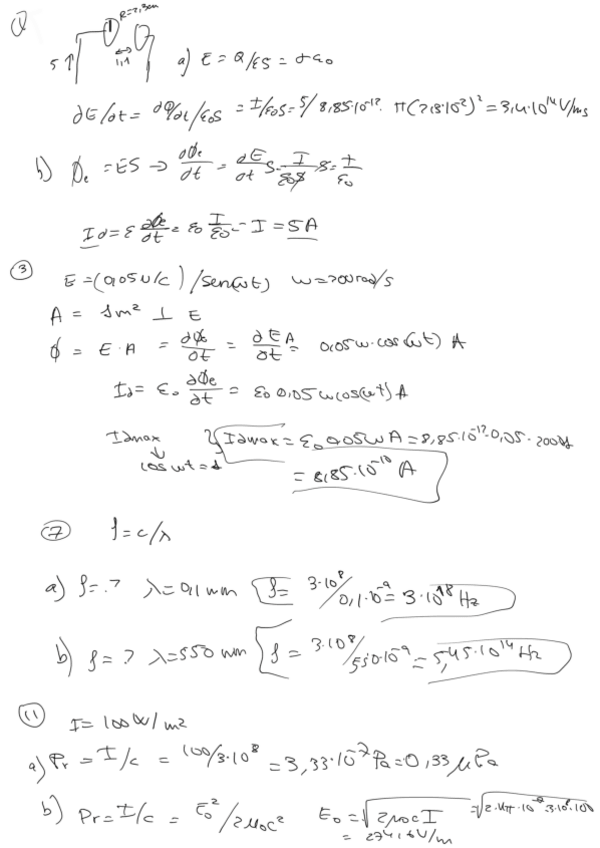 ①
R=2,3cm
5↑
1,1
a) E = Q/εS = σ/ε₀
∂E/∂t = ∂Q/∂t/ε₀S = I/ε₀S = 5/8,85·10⁻¹². π(2,3·10²)² = 3,4·10¹⁴ V/ms
b) ϕₑ = ES → ∂ϕₑ/∂t = ∂E/∂t S = I/ε₀S S = I/ε₀
Id = ε ∂ϕₑ/∂t = ε₀ I/ε₀ = I = 5A
③
E = (0,05 N/C) / sen(ωt) ω = 200 rad/s
A = 1m² ⊥ E
ϕ = E·A = ∂ϕₑ/∂t = ∂EA/∂t = 0,05 ω·cos(ωt) A
Id = ε₀ ∂ϕₑ/∂t = ε₀ 0,05 ω cos(ωt) A
Idmax Idmax = ε₀ 0,05 ω A = 8,85·10⁻¹²·0,05·2000·1
↓
cos ωt = 1
= 8,85·10⁻¹⁰ A
⑦ f = c/λ
a) f = ? λ = 0,1 nm f = 3·10⁸/0,1·10⁻⁹ = 3·10¹⁸ Hz
b) f = ? λ = 550 nm f = 3·10⁸/550·10⁻⁹ = 5,45·10¹⁴ Hz
⑪
I = 100 W/m²
a) Pr = I/c = 100/3·10⁸ = 3,33·10⁻⁷ Pa = 0,33 μPa
b) Pr = I/c = E₀²/2μ₀c² E₀ = √2μ₀cI = √2·4π·10⁻⁷·3·10⁸·100
= 274,6 V/m